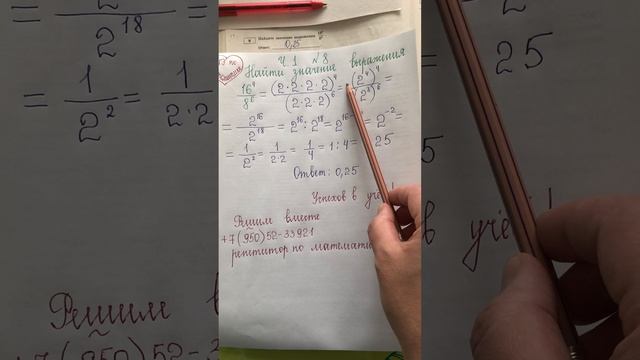 Найдите значение выражения
Ответ: 0,25
Ч.1 №8
Найти значение выражения
16⁴/8⁶ = (2·2·2·2)⁴/(2·2·2)⁶ = (2⁴)⁴/(2³)⁶ =
= 2¹⁶/2¹⁸ = 2¹⁶ : 2¹⁸ = 2¹⁶⁻ = 2⁻² =
= 1/2² = 1/2·2 = 1/4 = 1:4 = 25
Ответ: 0,25
Успехов в учё !
Решим вместе
+7(950)52-33921
репетитор по математи